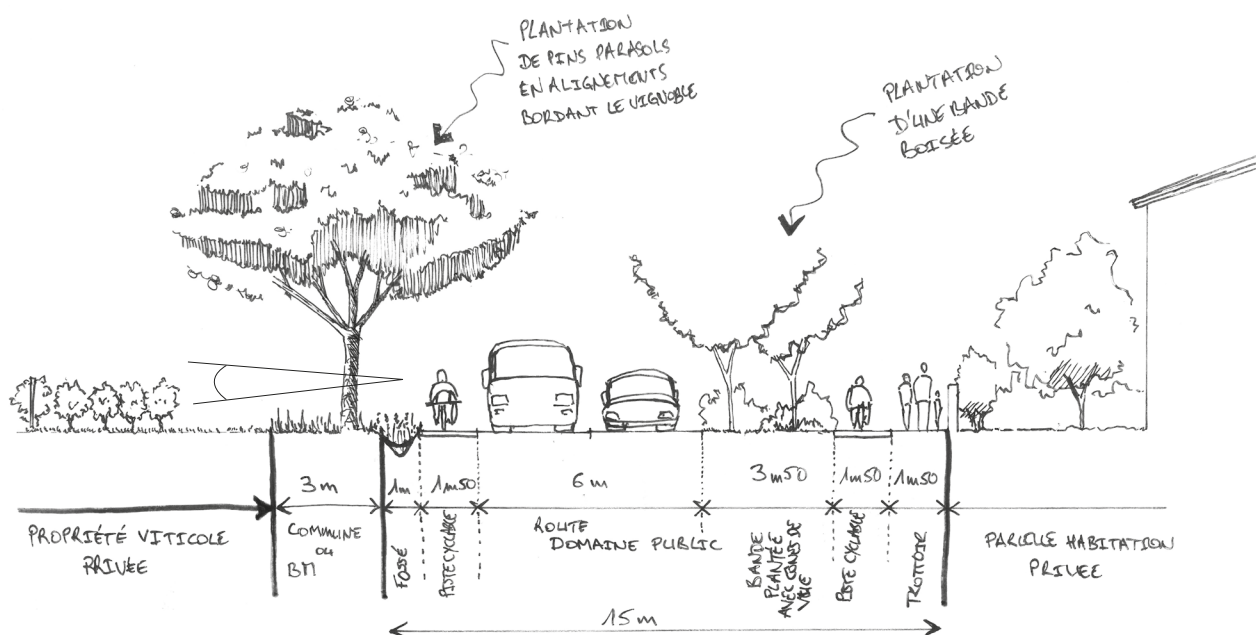 PLANTATION
DE PINS PARASOLS
EN ALIGNEMENTS
BORDANT LE VIGNOBLE
PLANTATION
D'UNE BANDE
BOISÉE
3m
1m
1m50
6m
3m50
1m50
1m50
PROPRIÉTÉ VITICOLE
PRIVÉE
COMMUNE
OU
BM
FOSSÉ
PISTE CYCLABLE
ROUTE
DOMAINE PUBLIC
BANDE
PLANTÉE
AVEC CONES DE
VUE
PISTE CYCLABLE
TROTTOIR
PARCELLE HABITATION
PRIVEE
15m